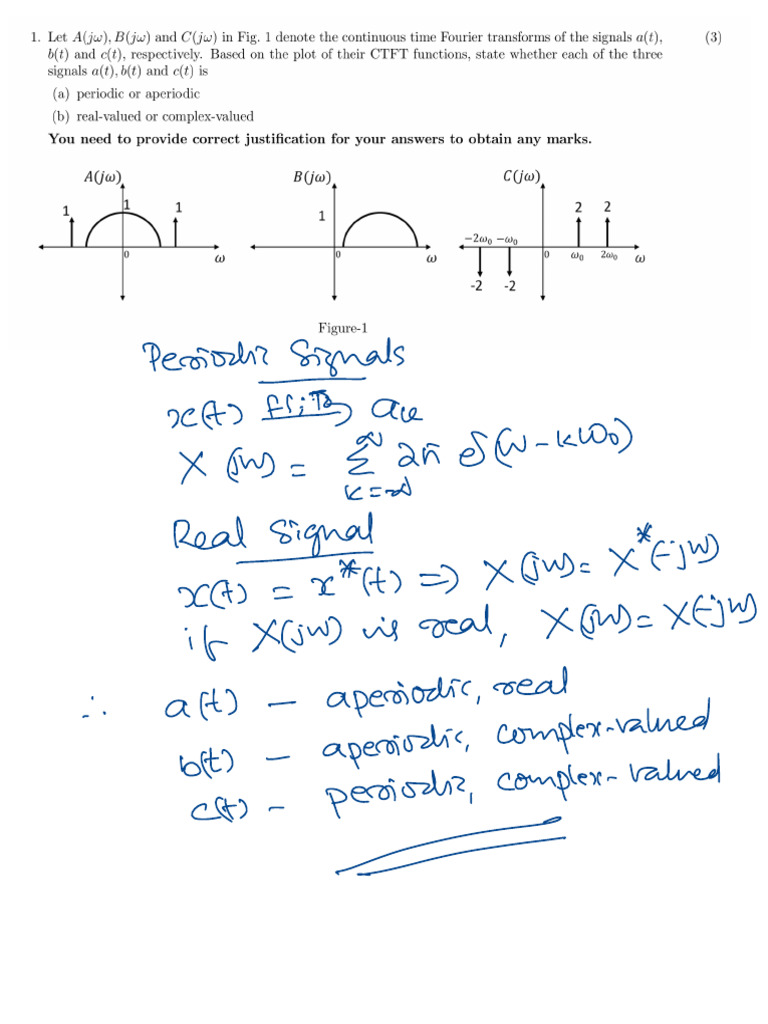 1. Let A(jω), B(jω) and C(jω) in Fig. 1 denote the continuous time Fourier transforms of the signals a(t), (3)
b(t) and c(t), respectively. Based on the plot of their CTFT functions, state whether each of the three
signals a(t), b(t) and c(t) is
(a) periodic or aperiodic
(b) real-valued or complex-valued
You need to provide correct justification for your answers to obtain any marks.
A(jω) B(jω) C(jω)
1 1 1 1 2 2
−2ω₀ −ω₀
0 ω 0 ω 0 ω₀ 2ω₀ ω
-2 -2
Figure-1
Periodic Signals
x(t) are
X(jω) = ∞ Σ k=-∞ 2π δ(ω-kω₀)
Real Signal
x(t) = x*(t) => X(jω) = X*(-jω)
if X(jω) is real, X(jω) = X(-jω)
∴ a(t) – aperiodic, real
b(t) – aperiodic, complex-valued
c(t) – periodic, complex-valued